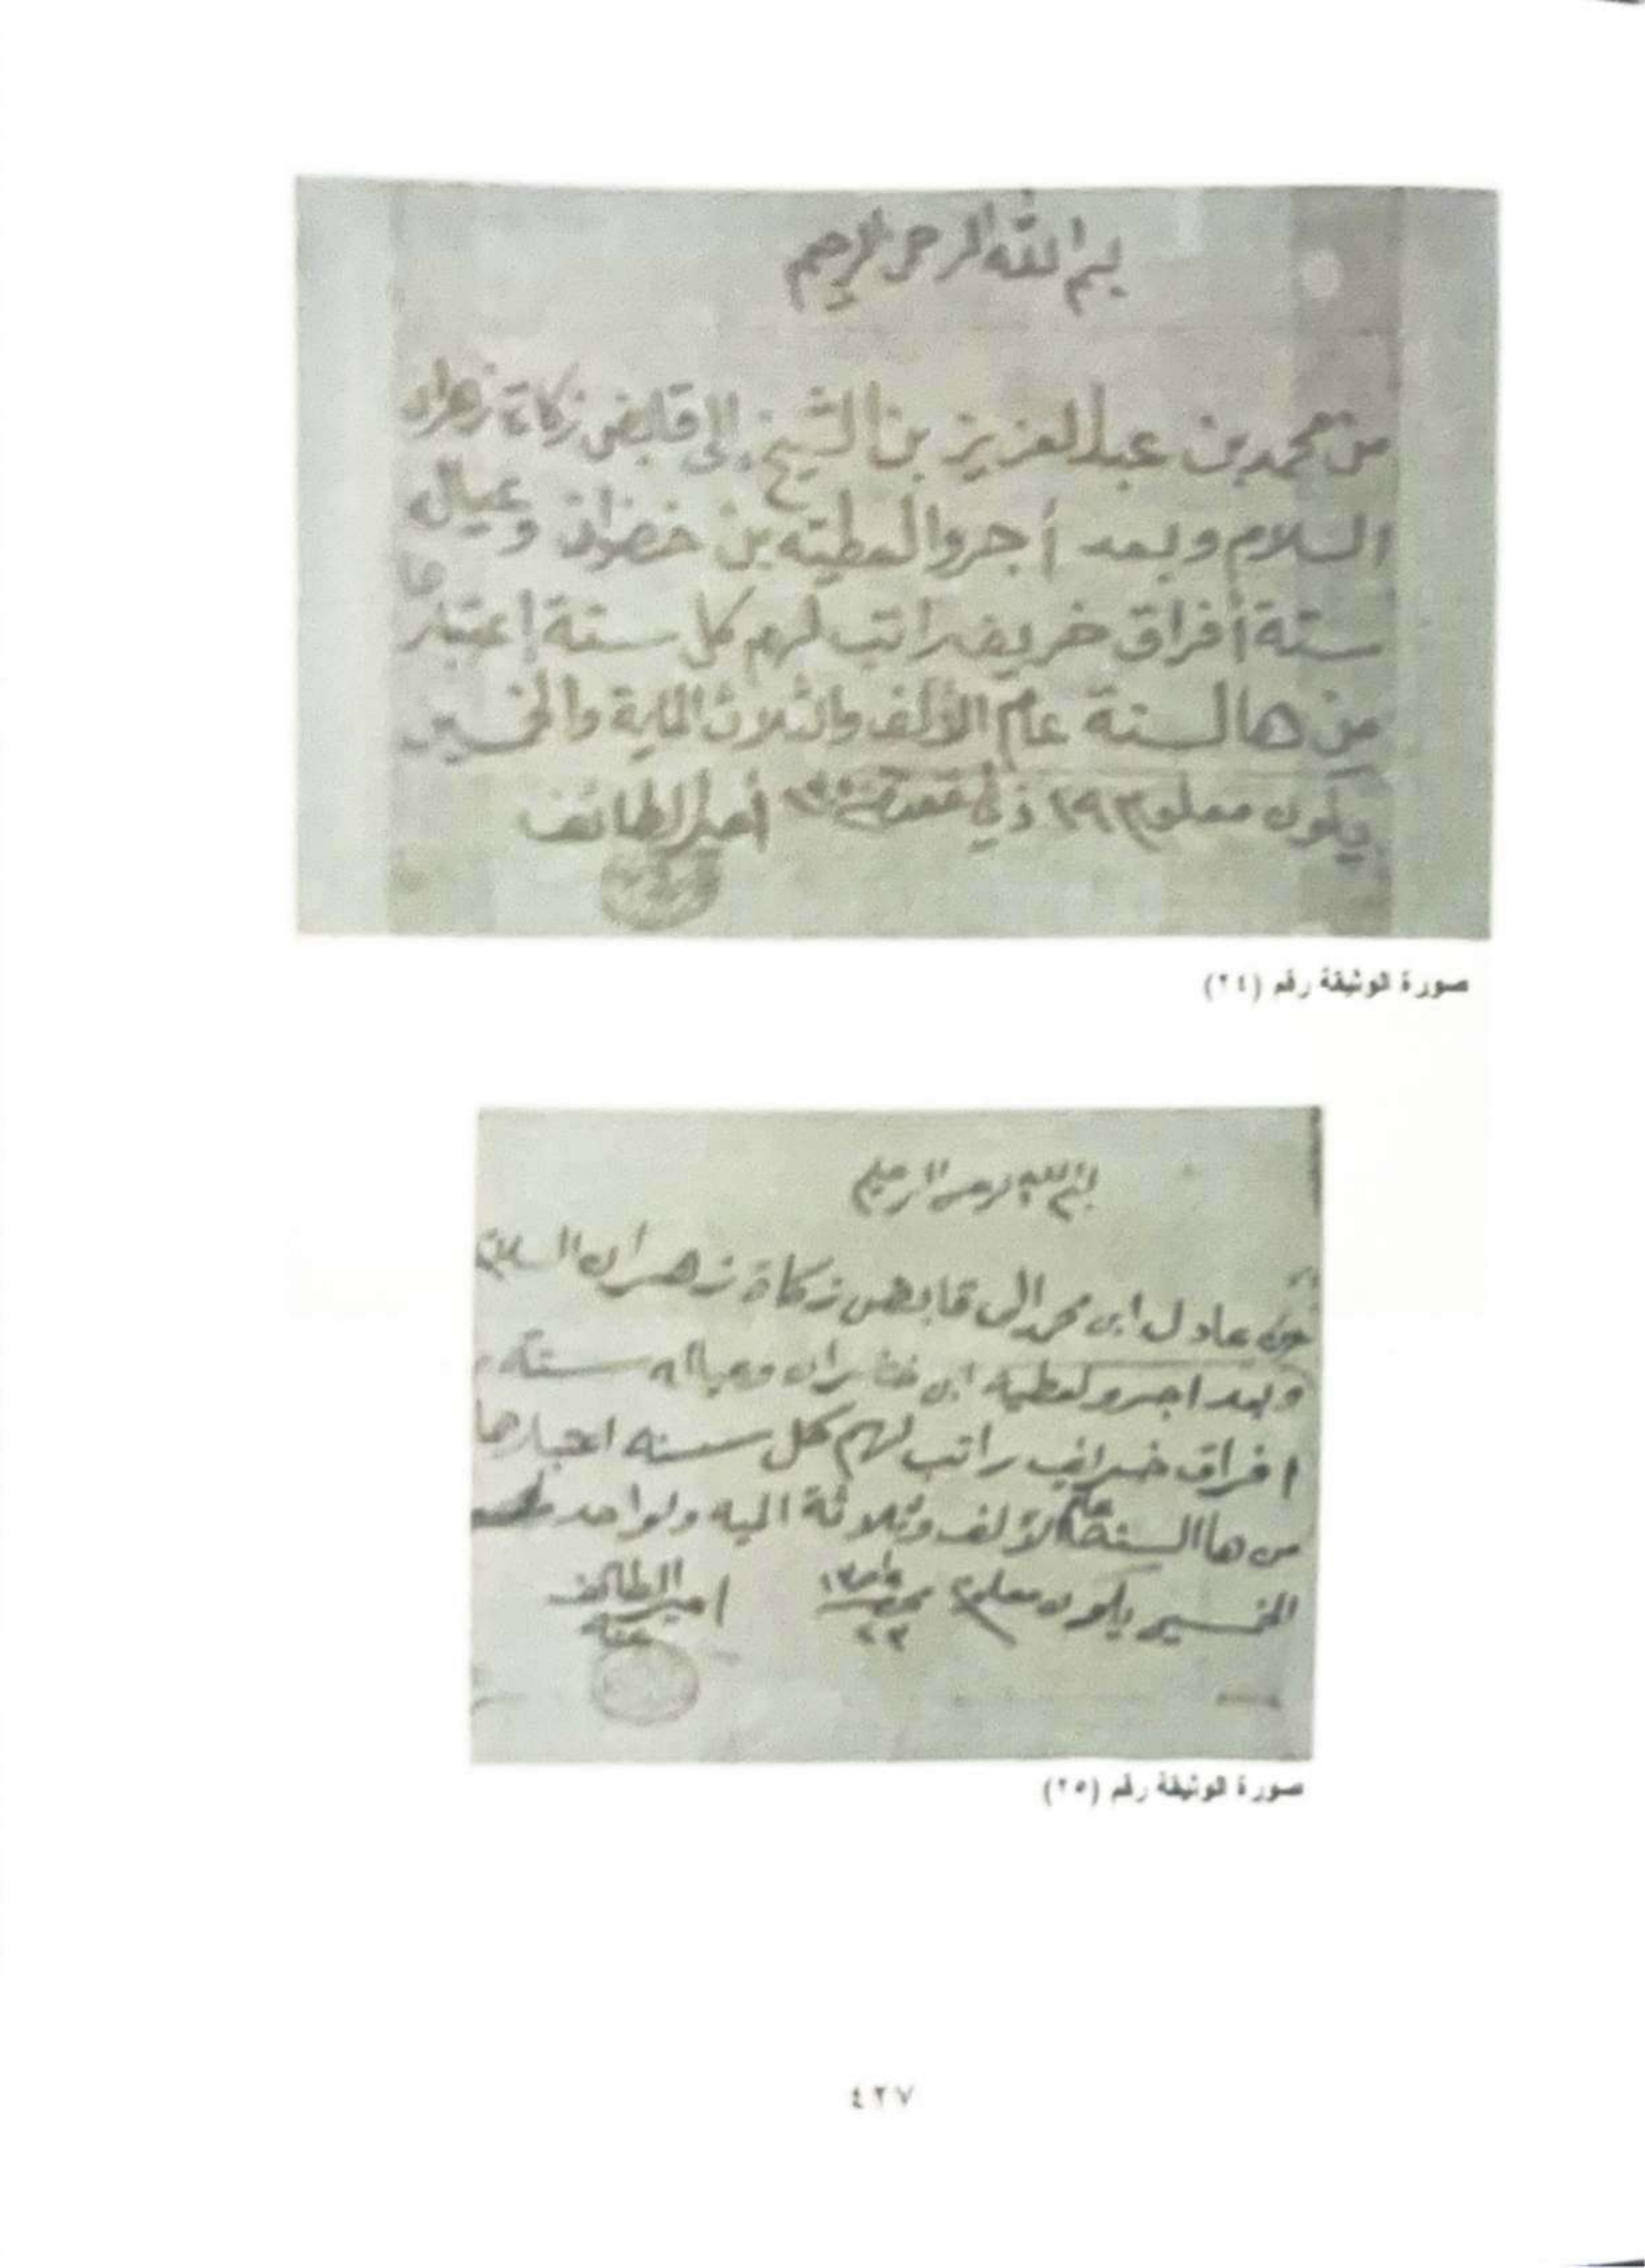 بسم الله الرحمن الرحيم
من محمد بن عبد العزيز بن الشيخ إلى قابض زكاة زهران
السلام وبعد أجروا لعطيته بن خضران وعياله
ستة أفراق خريف راتب لهم كل سنة إعتبار
من هالسنة عام الألف والثلاث الماية والخمسين
يكون معلوم ٢٩ ذي قعدة ١٣٥٠ أمير الطائف
صورة الوثيقة رقم (٢٤)
بسم الله الرحمن الرحيم
من عادل ابن محمد الى قابض زكاة زهران السلام
وبعد اجرو لعطية ابن خضران وعياله ستة
افراق خريف راتب لهم كل سنه اعتبارها
من هاالسنة عام الألف وثلاثة الميه ولواحد
الخمسين يكون معلوم ١٣٥١ امير الطائف
٢٣
صورة الوثيقة رقم (٢٥)
٤٢٧